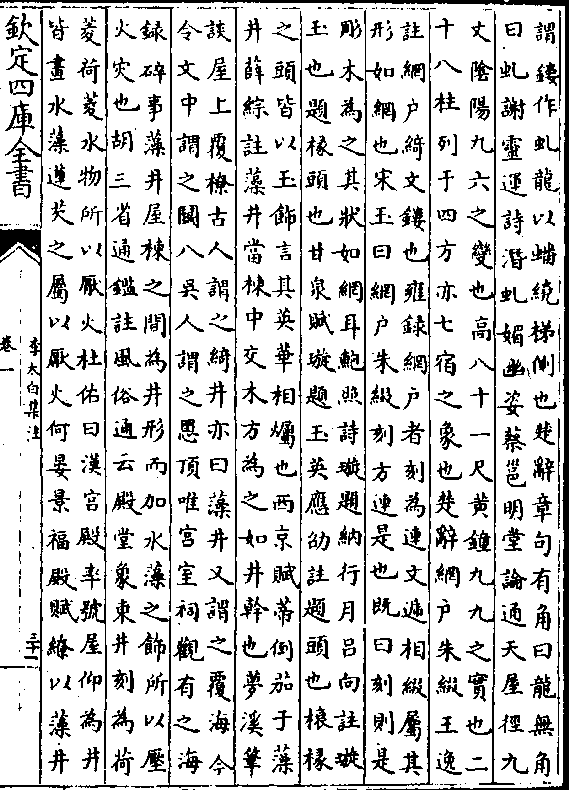 謂鏤作虬龍以蟠繞梯側也楚辭章句有角曰龍無角
曰虬謝靈運詩潛虬媚幽姿蔡邕明堂論通天屋徑九
丈陰陽九六之變也高八十一尺黃鐘九九之實也二
十八柱列于四方亦七宿之象也楚辭網户朱綴王逸
註網户綺文鏤也雍録網户者刻為連文遞相綴屬其
形如網也宋玉曰網户朱綴刻方連是也既曰刻則是
彫木為之其狀如網耳鮑照詩璇題納行月吕向註璇
玉也題椽頭也甘泉賦璇題玉英應劭註題頭也榱椽
之頭皆以玉飾言其英華相爥也西京賦蔕倒茄于藻
井薛綜註藻井當棟中交木方為之如井幹也夢溪筆
談屋上覆橑古人謂之綺井亦曰藻井又謂之覆海今
令文中謂之鬭八吳人謂之罳頂唯宫室祠觀有之海
録碎事藻井屋棟之間為井形而加水藻之飾所以壓
火灾也胡三省通鑑註風俗通云殿堂象東井刻為荷
菱荷菱水物所以厭火杜佑曰漢宫殿率號屋仰為井
皆畫水藻蓮芡之屬以厭火何晏景福殿賦繚以藻井
欽定四庫全書
李太白集注
卷一
三十一